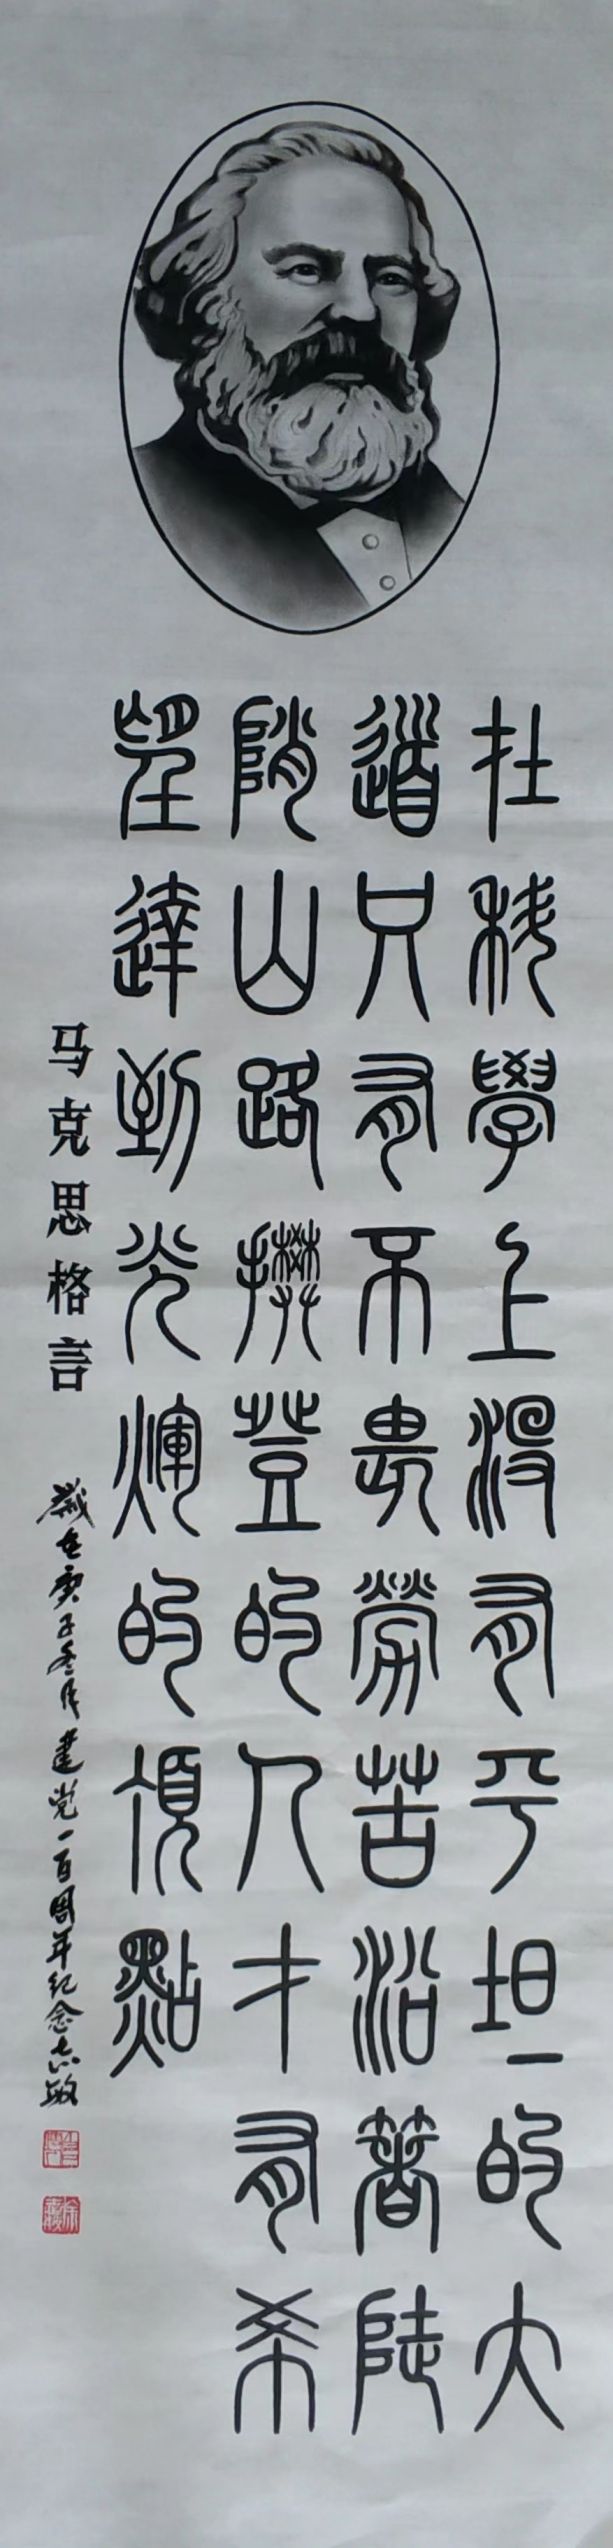 在科學上没有平坦的大
道只有不畏勞苦沿著陡
陗山路攀登的人才有希
望達到光煇的頂點
马克思格言 歲在庚子冬月建党一百周年纪念志敏